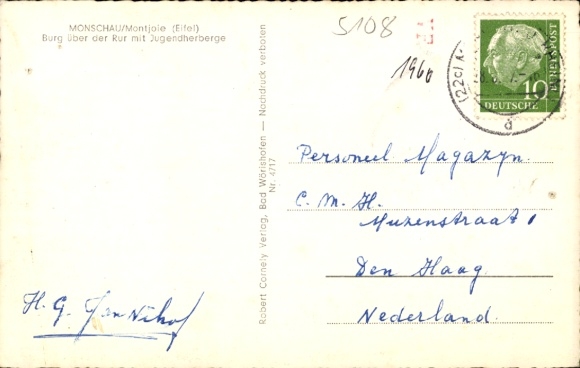 MONSCHAU/Montjoie (Eifel)
Burg über der Rur mit Jugendherberge
5108
1960
DEUTSCHE
BUNDESPOST
10
(22c)
d
Robert Cornely Verlag, Bad Wörishofen — Nachdruck verboten
Nr. 4717
Personeel Magazyn
C. M. H.
Muzenstraat 1
Den Haag
Nederland.
H. G.